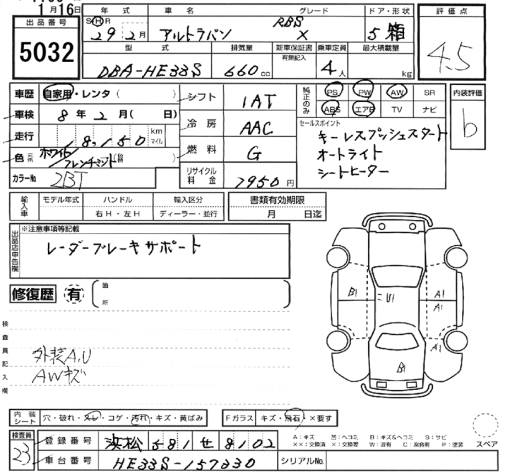 1月16日
出品番号
5032
年式 車名 グレード ドア・形状
SH 29年2月 アルトラパン RBS X 5 箱
型式 排気量 新車保証書 乗車定員 最大積載量
有無記入
DBA-HE33S 660cc 4人 kg
評価点
4.5
車歴 自家用・レンタ( )
車検 8年2月( 日)
走行 km マイル
色 ホワイト/フレンチミント
カラーNo 2BT
シフト 1AT
冷房 AAC
燃料 G
リサイクル料金 7950円
純正のみ PS PW AW SR
ABS エアB TV ナビ
セールスポイント
キーレスプッシュスタート
オートライト
シートヒーター
内装評価
b
輸入車 モデル年式 ハンドル 輸入区分
右H・左H ディーラー・並行
書類有効期限
月 日迄
出品店申告欄
※注意事項等記載
レーダーブレーキサポート
修復歴 有 箇所
検査員記入欄
外装A,U
AWキズ
B1 U1 A1
A1
B1
内装シート 穴・破れ・スレ・コゲ・汚れ・キズ・黄ばみ Fガラス キズ・飛石・×要す
検査員
23
登録番号 浜松 581 せ 8102
車台番号 HE33S-157330 シリアルNo.
A:キズ U:ヘコミ B:キズ&ヘコミ S:サビ
スペア